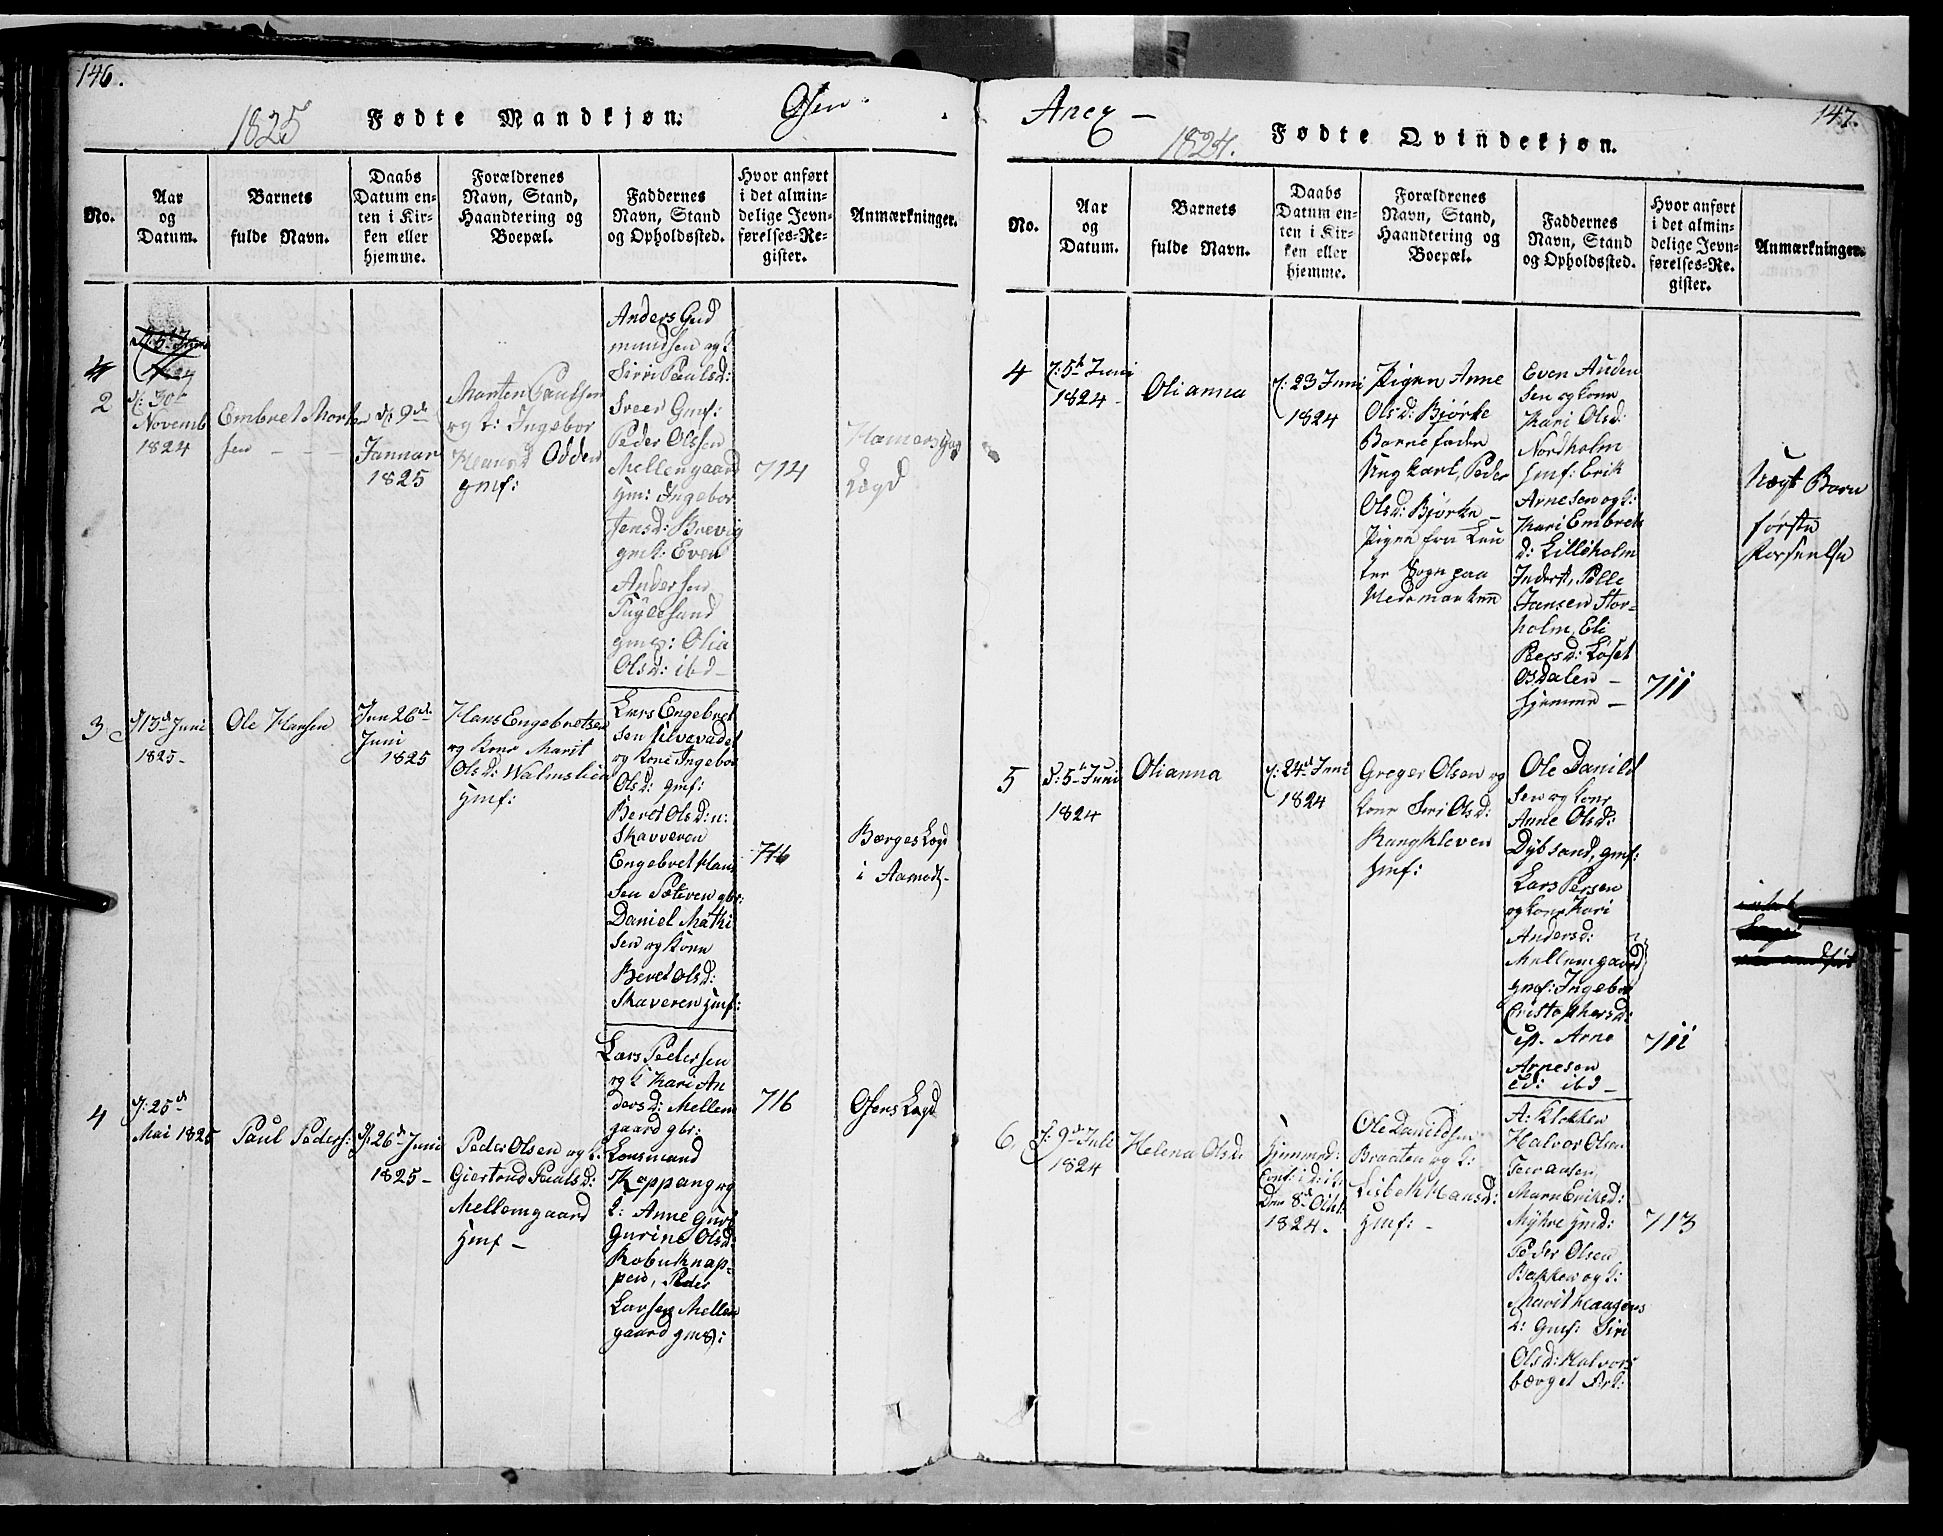 146.
1825
Fødte Mandkjøn.
Osen
No.
Aar
og
Datum.
Barnets
fulde Navn.
Daabs
Datum en-
ten i Kir-
ken eller
hjemme.
Forældrenes
Navn, Stand,
Haandtering og
Boepæl.
Faddernes
Navn, Stand
og Opholdssted.
Hvor anført
i det almin-
delige Jevn-
førelses-Re-
gister.
Anmærkninger.
2
d: 30t
Novemb
1824
Embret Morten
sen
d: 9de
Januar
1825
Morten Paulsen
og k: Ingebor
Odden
gmf:
Anders Gud
mundsen og k:
Sirri Paulsd:
Sveen Gmf:
Peder Olssen
Mellemgaard
Hm: Ingebor
Jensd: Brevig
gmk: Even
Andersen
gmf: Olia
Olsd: ibd
714
Lægd
3
d 13d Juni
1825
Ole Hansen
Inn 26de
Juni
1825
Hans Engebretsen
og kone Marit
Olsd: Walmslien
Hmf:
Lars Engebret
sen
og kone Ingebor
Olsd: gmf:
Beret Olsd: n:
Skavveren
Engebret Han
sen Sæteren gbr:
Daniel Mathi
sen og kone
Beret Olsd:
Skaveren Hmf:
716
Børges Lægd
i Aamodt
4
d: 25de
Mai 1825
Paul Peders:
d: 26de Juni
1825
Peder Olsen og k:
Giertrud Paulsd:
Mellemgaard
Hmf
Lars Pedersen
og k Kari An
dersd: Mellem
gaard gbr:
Lensmand
Koppang og
k: Anne Gurl
Gurine Olsd:
pen, Peder
Larsen Mellem
gaard gms:
716
Osens Lægd
Anex
1824.
Fødte Qvindekjøn.
147.
No.
Aar
og
Datum.
Barnets
fulde Navn.
Daabs
Datum en-
ten i Kir-
ken eller
hjemme.
Forældrenes
Navn, Stand,
Haandtering og
Boepæl.
Faddernes
Navn, Stand
og Opholdssted.
Hvor anført
i det almin-
delige Jevn-
førelses-Re-
gister.
Anmærkninger.
4
d: 5te Juni
1824
Olianna
d: 23 Juni
1824
Pigen Anne
Olsd: Bjørke
Barnefader
Ungkarl, Peder
Olsd: Bjørke
Pigen fra Leu
ten Sogn paa
Hedemarken
Even Anden
sen og kone
Kari Olsd:
Nordholm
Hmf: Erik
Arnesen og k:
Kari Embrets
d: Lilleholm
Inderst, Pølle
Jansen Stor-
holm, Eli
Persd: Løset
Osdalen
hjemme
711
Uægt Barn
første
Forseelse
5
d: 5te Juni
1824
Olianna
d: 24de Juni
1824
Greger Olsen og
kone Siri Olsd:
Rangkleven
Hmf:
Ole Danild
sen og kone
Anne Olsd:
Dybsand, gmf:
Lars Persen
og kone Kari
Andersd:
Mellemgaard
gmf: Ingebor
Cristophersd:
Arne
Arnesen
ibd
711
6
d: 9de Juli
1824
Helena Olsd:
Hjemmed:
Conf: i d: k:
Den 8de Okt
1824.
Ole Danildsen
Braaten og k:
Lisbeth Hansd:
Hmf:
A: Klokken
Halvor Olsen
Maren Eriksd:
Myhre Hmd:
Peder Olsen
Bakken og k:
Marit Haagens
d: Gmf: Siri
Olsd: Halvors
bærget
713